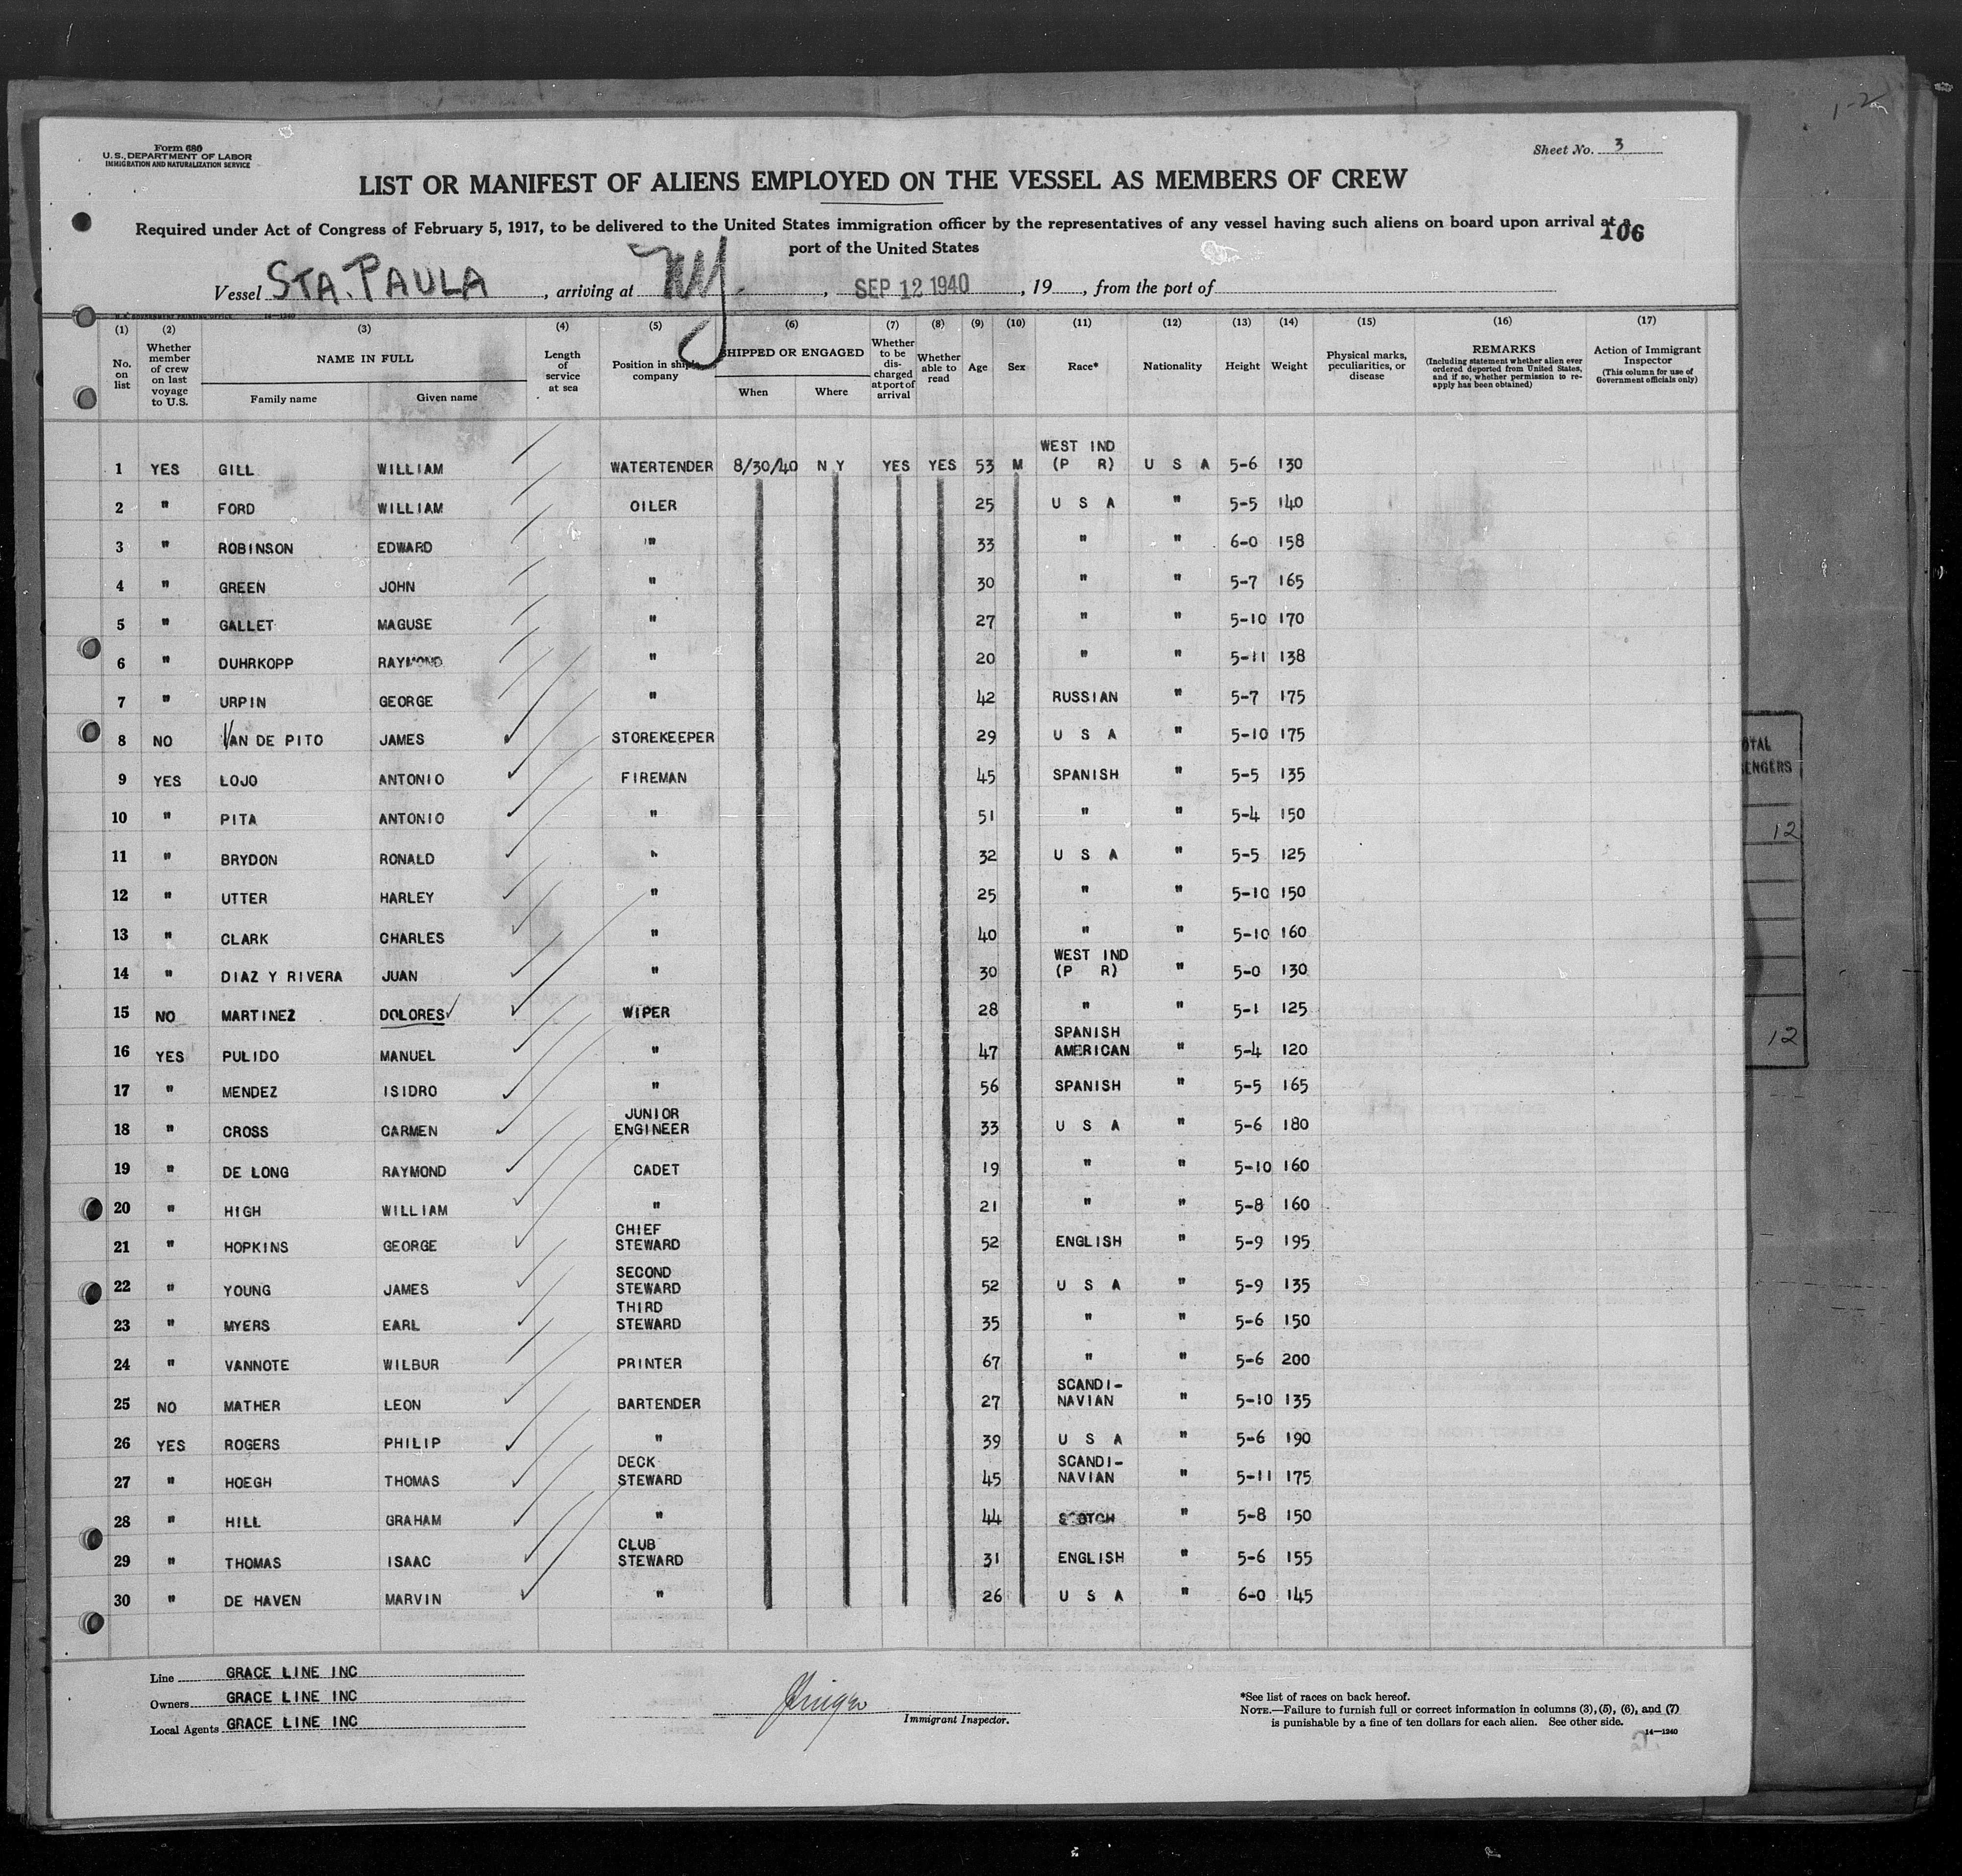 1-2
Form 680
U.S. DEPARTMENT OF LABOR
IMMIGRATION AND NATURALIZATION SERVICE
Sheet No. 3
LIST OR MANIFEST OF ALIENS EMPLOYED ON THE VESSEL AS MEMBERS OF CREW
Required under Act of Congress of February 5, 1917, to be delivered to the United States immigration officer by the representatives of any vessel having such aliens on board upon arrival at a
port of the United States
106
Vessel STA. PAULA, arriving at NY., SEP 12 1940, 19, from the port of
U.S. GOVERNMENT PRINTING OFFICE 14-1240
(1) (2) (3) (4) (5) (6) (7) (8) (9) (10) (11) (12) (13) (14) (15) (16) (17)
No. on list
Whether member of crew on last voyage to U.S.
NAME IN FULL
Family name
Given name
Length of service at sea
Position in ship's company
SHIPPED OR ENGAGED
When
Where
Whether to be discharged at port of arrival
Whether able to read
Age
Sex
Race*
Nationality
Height
Weight
Physical marks, peculiarities, or disease
REMARKS
(Including statement whether alien ever ordered deported from United States, and if so, whether permission to reapply has been obtained)
Action of Immigrant Inspector
(This column for use of Government officials only)
1 YES GILL WILLIAM WATERTENDER 8/30/40 N Y YES YES 53 M WEST IND (P R) U S A 5-6 130
2 " FORD WILLIAM OILER 25 U S A " 5-5 140
3 " ROBINSON EDWARD " 33 " " 6-0 158
4 " GREEN JOHN " 30 " " 5-7 165
5 " GALLET MAGUSE " 27 " " 5-10 170
6 " DUHRKOPP RAYMOND " 20 " " 5-11 138
7 " URPIN GEORGE " 42 RUSSIAN " 5-7 175
8 NO VAN DE PITO JAMES STOREKEEPER 29 U S A " 5-10 175
9 YES LOJO ANTONIO FIREMAN 45 SPANISH " 5-5 135
10 " PITA ANTONIO " 51 " " 5-4 150
11 " BRYDON RONALD " 32 U S A " 5-5 125
12 " UTTER HARLEY " 25 " " 5-10 150
13 " CLARK CHARLES " 40 " " 5-10 160
14 " DIAZ Y RIVERA JUAN " 30 WEST IND (P R) " 5-0 130
15 NO MARTINEZ DOLORES WIPER 28 " " 5-1 125
16 YES PULIDO MANUEL " 47 SPANISH AMERICAN " 5-4 120
17 " MENDEZ ISIDRO " 56 SPANISH " 5-5 165
18 " CROSS CARMEN JUNIOR ENGINEER 33 U S A " 5-6 180
19 " DE LONG RAYMOND CADET 19 " " 5-10 160
20 " HIGH WILLIAM " 21 " " 5-8 160
21 " HOPKINS GEORGE CHIEF STEWARD 52 ENGLISH " 5-9 195
22 " YOUNG JAMES SECOND STEWARD 52 U S A " 5-9 135
23 " MYERS EARL THIRD STEWARD 35 " " 5-6 150
24 " VANNOTE WILBUR PRINTER 67 " " 5-6 200
25 NO MATHER LEON BARTENDER 27 SCANDI-NAVIAN " 5-10 135
26 YES ROGERS PHILIP " 39 U S A " 5-6 190
27 " HOEGH THOMAS DECK STEWARD 45 SCANDI-NAVIAN " 5-11 175
28 " HILL GRAHAM " 44 SCOTCH " 5-8 150
29 " THOMAS ISAAC CLUB STEWARD 31 ENGLISH " 5-6 155
30 " DE HAVEN MARVIN " 26 U S A " 6-0 145
Line GRACE LINE INC
Owners GRACE LINE INC
Local Agents GRACE LINE INC
Immigrant Inspector.
*See list of races on back hereof.
NOTE.—Failure to furnish full or correct information in columns (3), (5), (6), and (7)
is punishable by a fine of ten dollars for each alien. See other side.
14-1240
OTAL
ENGERS
12
12